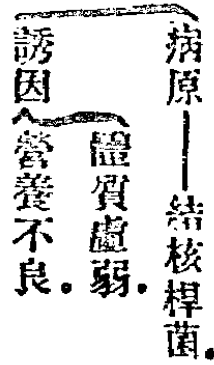 病原——結核桿菌。
誘因
體質虛弱。
營養不良。